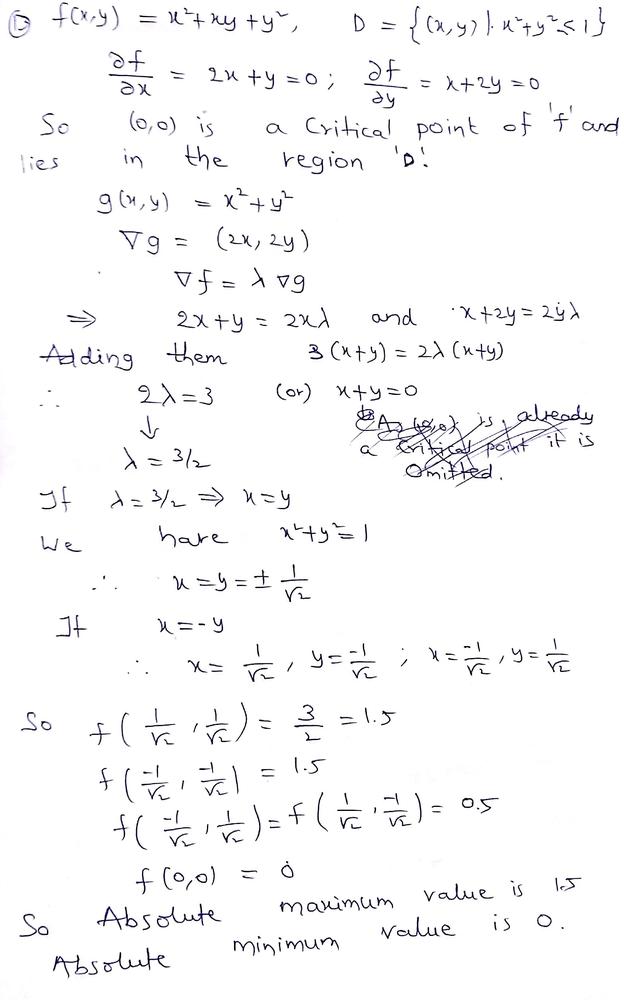 ① f(x,y) = x²+xy+y², D = {(x,y) | x²+y² ≤ 1}
∂f/∂x = 2x+y=0 ; ∂f/∂y = x+2y=0
So (0,0) is a Critical point of 'f' and
lies in the region 'D'.
g(x,y) = x²+y²
∇g = (2x, 2y)
∇f = λ ∇g
⇒ 2x+y = 2xλ and x+2y = 2yλ
Adding them 3(x+y) = 2λ(x+y)
∴ 2λ=3 (or) x+y=0
↓
As (0,0) is already
a Critical point it is
Omitted.
λ = 3/2
If λ = 3/2 ⇒ x=y
We have x²+y²=1
∴ x=y=± 1/√2
If x=-y
∴ x= 1/√2 , y= -1/√2 ; x= -1/√2 , y= 1/√2
So f(1/√2 , 1/√2) = 3/2 = 1.5
f(-1/√2 , -1/√2) = 1.5
f(-1/√2 , 1/√2) = f(1/√2 , -1/√2) = 0.5
f(0,0) = 0
So Absolute maximum value is 1.5
Absolute minimum value is 0.